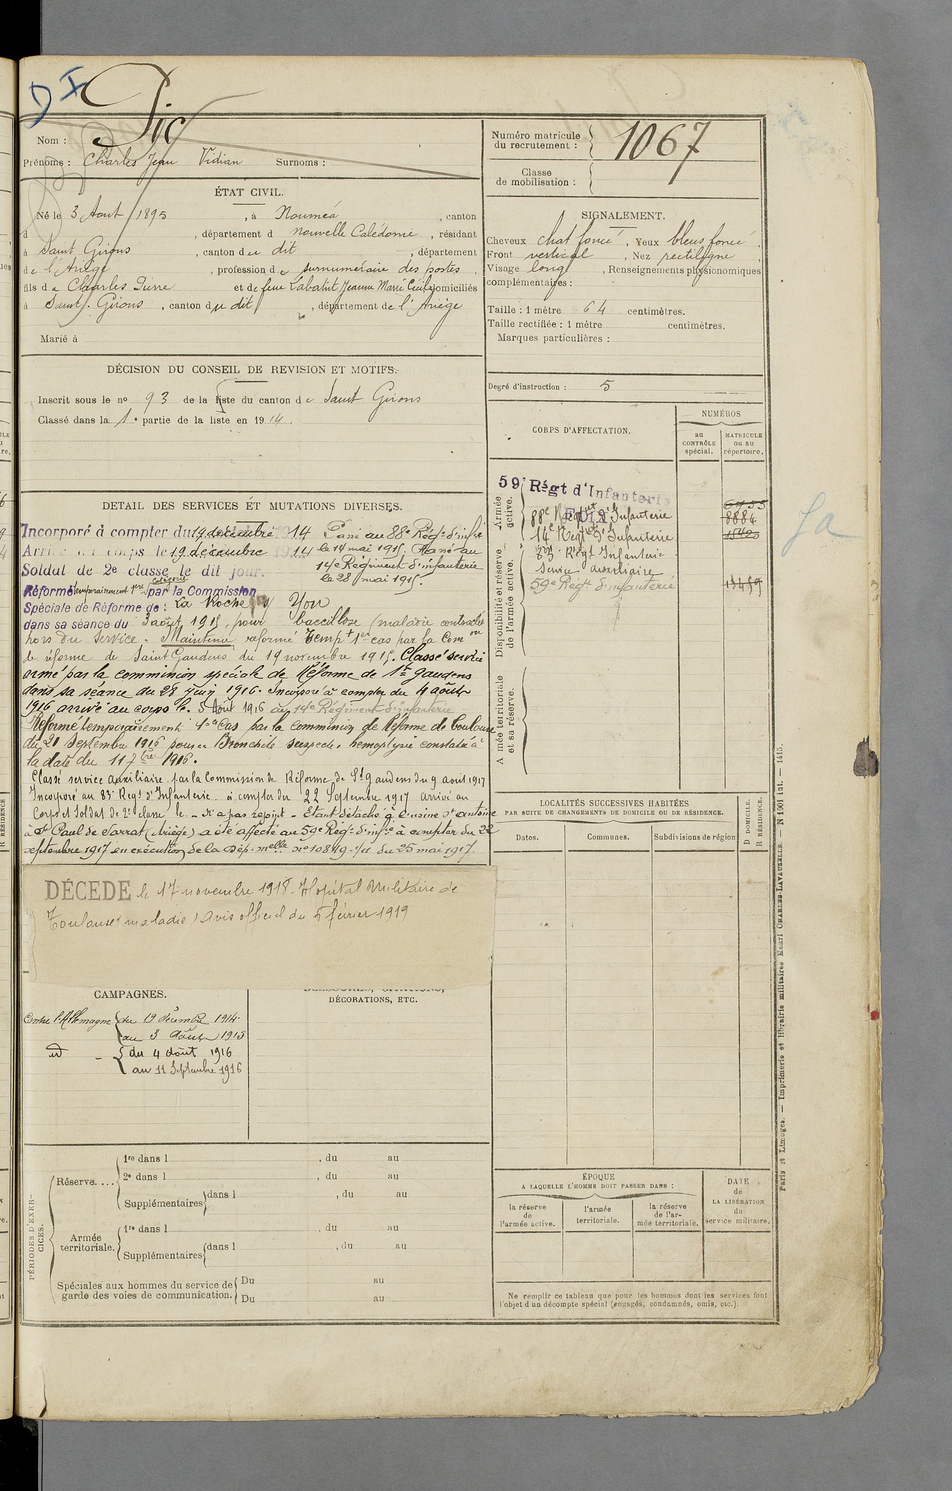 D I
Pic
Nom :
Prénoms : Charles Jean Vidian Surnoms :
Numéro matricule du recrutement : 1067
Classe de mobilisation :
ÉTAT CIVIL.
Né le 3 Août 1895, à Nouméa, canton
d , département d Nouvelle Calédonie, résidant
à Saint Girons, canton du dit, département
de l'Ariège, profession de surnuméraire des postes,
fils de Charles Pierre et de feue Labatut Jeanne Marie domiciliés
à Saint Girons, canton du dit, département de l'Ariège
Marié à
SIGNALEMENT.
Cheveux chat. foncé, Yeux bleus foncé,
Front vertical, Nez rectiligne
Visage long, Renseignements physionomiques
complémentaires :
Taille : 1 mètre 64 centimètres.
Taille rectifiée : 1 mètre centimètres.
Marques particulières :
Degré d'instruction : 5
DÉCISION DU CONSEIL DE REVISION ET MOTIFS.
Inscrit sous le no 93 de la liste du canton de Saint Girons
Classé dans la 1e partie de la liste en 1914.
CORPS D'AFFECTATION.
NUMÉROS
au CONTRÔLE spécial.
MATRICULE ou au répertoire.
Armée active.
59 Régt d'Infanterie
FOIX
88e Régt d'Infanterie 8884
14e Régt d'Infanterie
Disponibilité et réserve de l'armée active.
83e Régt Infanterie
Service auxiliaire
59e Régt d'infanterie
Armée territoriale et sa réserve.
DETAIL DES SERVICES ET MUTATIONS DIVERSES.
Incorporé à compter du 19 décembre 1914 Passé au 88e Rég. d'infie
Arrivé au corps le 19 décembre 1914 le 14 mai 1915. Passé au
Soldat de 2e classe le dit jour. 14e Régiment d'infanterie
le 28 mai 1915.
Réformé temporairement 1ère catégorie par la Commission
Spéciale de Réforme de : La Roche s/ Yon
dans sa séance du 3 août 1915, pour bacillose (maladie contractée
hors du service. Maintenu réformé tempt 1er cas par la Comon
de réforme de Saint Gaudens du 19 novembre 1915. Classé service
armé par la commission spéciale de Réforme de St gaudens
dans sa séance du 28 juin 1916. Incorporé à compter du 4 août
1916 arrivé au corps le 5 Août 1916 au 14e Régiment d'infanterie
Réformé temporairement 1er Cas par la commission de Réforme de Toulouse
du 21 septembre 1916 pour Bronchite suspecte, hemoptysie constatée à
la date du 11 7bre 1916.
Classé service auxiliaire par la Commission de Réforme de St gaudens du 9 août 1917
Incorporé au 83e Regt d'Infanterie à compter du 22 Septembre 1917 arrivé au
Corps et Soldat de 2e classe le - n'a pas rejoint - Etant détaché à l'usine St antoine
à St Paul de Jarrat (Ariège) a été affecté au 59e Régt d'infie à compter du 22
septembre 1917 en exécution de la Dép. melle no 10849 du 25 mai 1917.
DÉCÉDÉ le 17 novembre 1918. Hopital Militaire de
Toulouse (maladie) Avis officiel du 5 février 1919
LOCALITÉS SUCCESSIVES HABITÉES
PAR SUITE DE CHANGEMENTS DE DOMICILE OU DE RÉSIDENCE.
Dates. Communes. Subdivisions de région
D DOMICILE. R RÉSIDENCE.
CAMPAGNES.
Contre l'Allemagne du 19 décembre 1914
au 3 Août 1915
id - du 4 août 1916
au 11 Septembre 1916
DÉCORATIONS, ETC.
PÉRIODES D'EXERCICES.
Réserve....
1re dans l , du au
2e dans l , du au
Supplémentaires dans l , du au
Armée territoriale.
1re dans l , du au
Supplémentaires dans l , du au
Spéciales aux hommes du service de garde des voies de communication.
Du au
Du au
ÉPOQUE
A LAQUELLE L'HOMME DOIT PASSER DANS :
la réserve de l'armée active.
l'armée territoriale.
la réserve de l'armée territoriale.
DATE de LA LIBÉRATION du service militaire.
Ne remplir ce tableau que pour les hommes dont les services font
l'objet d'un décompte spécial (engagés, condamnés, omis, etc.).
Paris et Limoges. — Imprimerie et librairie militaires Henri CHARLES-LAVAUZELLE.